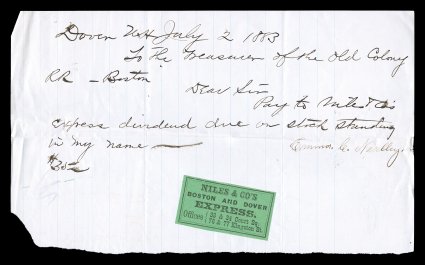 Dover NH July 2 1883
To the Treasurer of the Old Colony
RR - Boston
Dear Sir
Pay to Niles & Co's
express dividend due on stock standing
in my name —
$35
NILES & CO'S
BOSTON AND DOVER
EXPRESS.
Offices
Court Sq.
Kingston St.